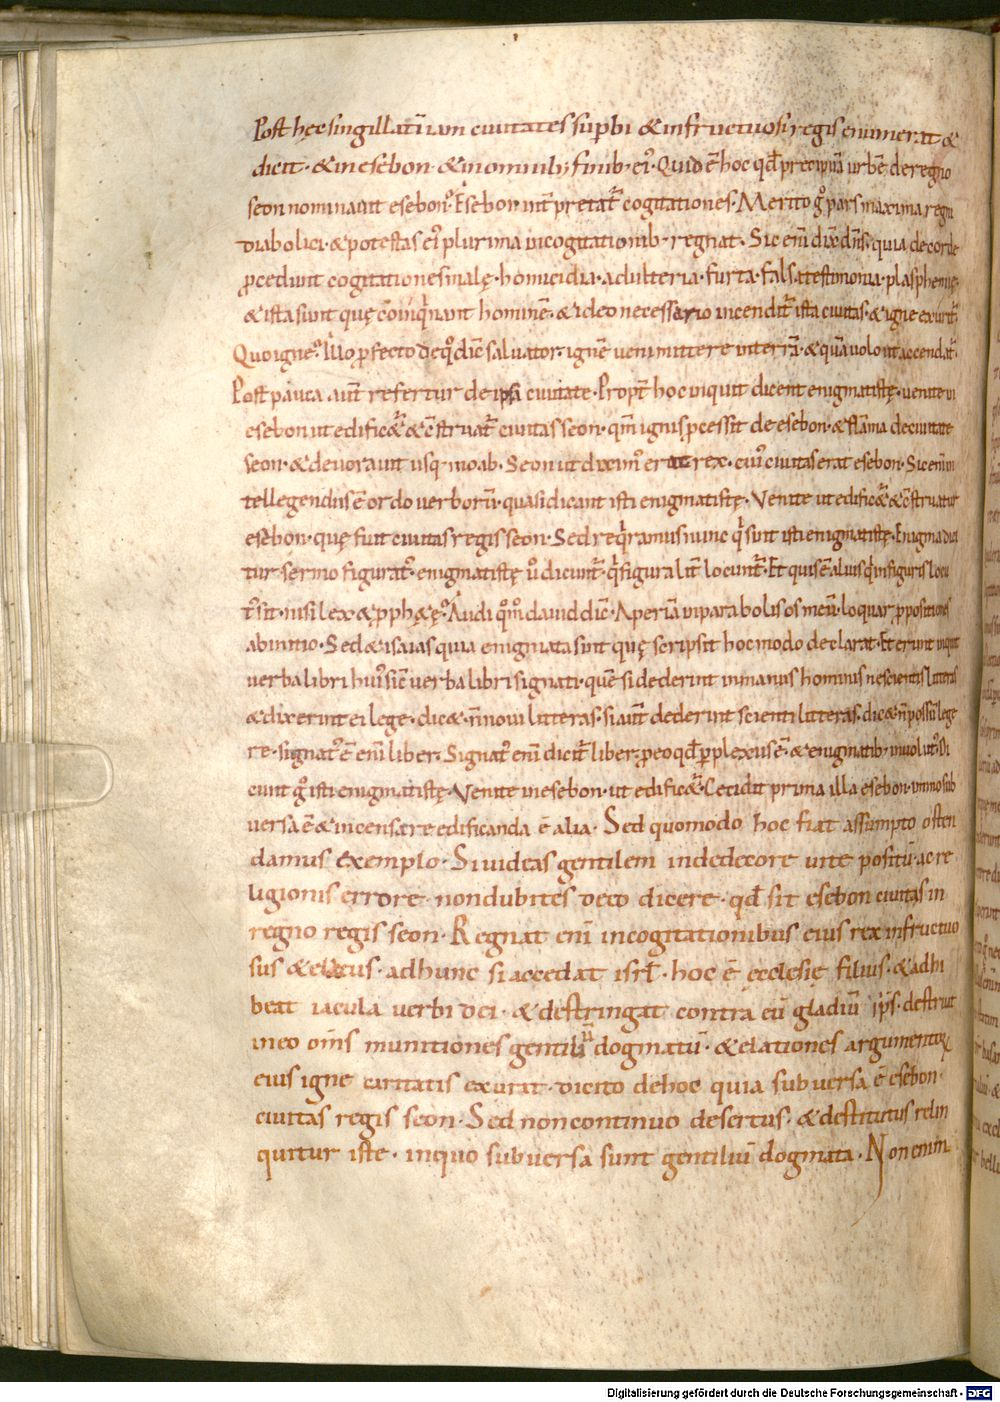 Post hęc singillatī iam ciuitates sup̄bi & infructuosi regis enumerat &
dicit · & in esebon · & in omnib; finib· ei᾽· Quid ē hoc qđ precipuā urbē de regno
seon nominauit esebon? Esebon int̄pretat᷑ cogitationes · Merito g͛ pars maxima regni
diabolici · & potestas ei᾽ plurima in cogitationib· regnat · Sic eni dixit dn̄s · quia de corde
ꝓcedunt cogitationes malę · homicidia · adulteria · furta · falsa testimonia · plasphemię ·
& ista sunt quę coinq͛nant hominē · & ideo necessario incendit᷑ ista ciuitas · & igne exurit᷑ ·
Quo igne? Illo ꝓfecto de q͛ dic̄ saluator · ignē ueni mittere in terrā · & quā uolo ut accendat᷑ ·
Post pauca aut̄ refertur de ipsa ciuitate · Propt̄ hoc inquit dicent enigmatistę · uenite in
esebon ut edific&᷑ & c̄struat᷑ ciuitas seon · qm̄ ignis p̄cessit de esebon · & flāma de ciuitate
seon · & deuorauit usq· moab · Seon ut dixim᾽ erat rex · cui᾽ ciuitas erat esebon · Sic eni in
tellegendus ē ordo uerborū · quasi dicant isti enigmatistę · Venite ut edific&᷑ & c̄struatur
esebon · quę fuit ciuitas regis seon · Sed req͛ramus nunc q͛ sunt isti enigmatistę · Enigma dici
tur sermo figurat᾽ · enigmatistę u͛ dicunt᷑ · q͛ figuralit̄ locunt᷑ · Et quis ē alius q͛ in figuris locu
t᾽ sit · nisi lex & ꝓph&ę? Audi q͛m͛ dauid dic̄ · Aperiā in parabolis os meū · loquar ꝓpositiones
ab initio · Sed & isaias quia enigmata sunt quę scripsit hoc modo declarat · Et erunt inquit
uerba libri hui᾽ sic̄ uerba libri signati · quē si dederint in manus hominis nescientis litteras
& dixerint ei lege · dic& n̄ noui litteras · si aut̄ dederint scienti litteras · dic& n̄ possū lege
re · signat᾽ ē eni liber · Signat᾽ eni dicit᷑ liber · ꝓ eo qđ ꝑplexus ē · & enigmatib· inuolut᾽ · Di
cunt g͛ isti enigmatistę · Venite in esebon · ut edific&᷑ · Cecidit prima illa esebon · immo sub
uersa ē & incensa · reedificanda ē alia · Sed quomodo hoc fiat assumpto osten
damus exemplo · Si uideas gentilem in dedecore uite positū · ac re
ligionis errore · non dubites deco dicere · qđ sit esebon ciuitas in
regno regis seon · Regnat eni in cogitationibus eius rex infructuo
sus & elatus · ad hunc si accedat isrł · hoc ē ecclesię filius · & adhi
beat iacula uerbi dei · & destringat contra eū gladiū sp̄s · destruat
in eo om̄s munitiones gentiliū dogmatū · & elationes argumentorꝝ
eius igne caritatis exurat · dicito de hoc quia subuersa ē esebon ·
ciuitas regis seon · Sed non continuo desertus · & destitutus relin
quitur iste · in quo subuersa sunt gentiliū dogmata · Non enim
Digitalisierung gefördert durch die Deutsche Forschungsgemeinschaft · DFG